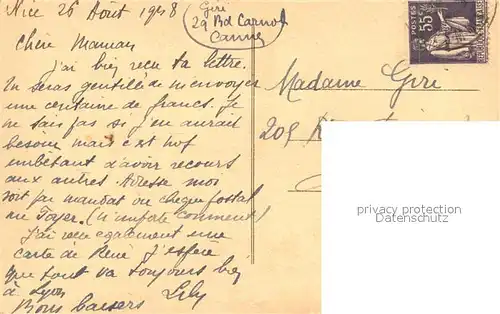 Nice 26 Août 1938
Giri
29 Bd Carnot
Cannes
Chère Maman
J'ai bien reçu ta lettre.
Tu serais gentille de m'envoyer
une centaine de francs. Je
ne sais pas si j'en aurai
besoin mais c'est
embêtant d'avoir recours
aux autres. Adresse moi
soit par mandat ou chèque postal
au Foyer. (n'importe comment)
J'ai reçu également une
carte de René J'espère
que tout va toujours bien
à Lyon
Bons baisers Lily
Madame Giri
POSTES
55c
privacy protection
Datenschutz